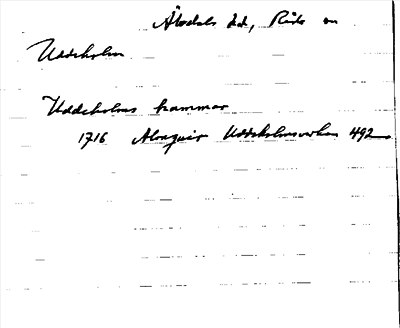 Älvdals hd, Rids sn
Uddeholm
Uddeholms hammar
1716 Almquist Uddeholmsverken 492